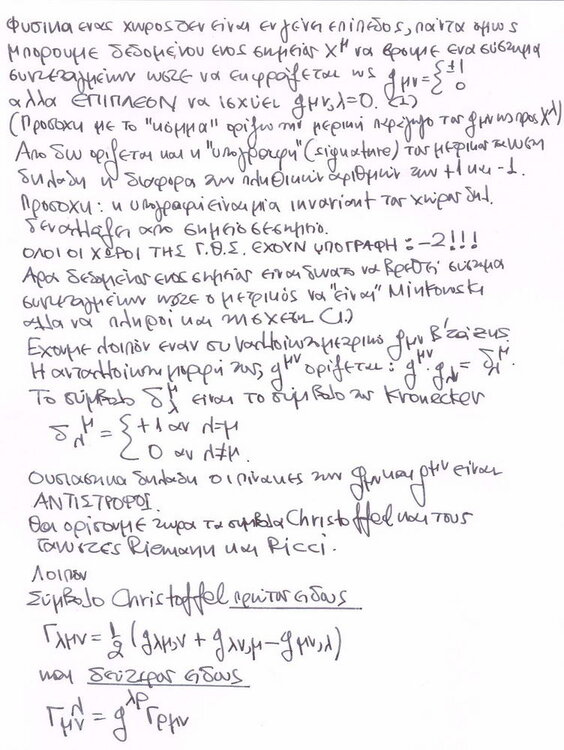 Φυσικα ενας χωρος δεν ειναι εν γενει επιπεδος, παντα ομως
μπορουμε δεδομενου ενος σημειου x^μ να βρουμε ενα σύστημα
συντεταγμενων ωστε να εκφράζεται ως g_μν = { ±1 0
αλλα ΕΠΙΠΛΕΟΝ να ισχυει g_μν,λ=0. (1)
(Προσοχη με το "κόμμα" οριζω την μερικη παραγωγο του g_μν ως προς x^λ)
Απο δω οριζεται και η "υπογραφη" (signature) του μετρικου τανυστη
δηλαδη η διαφορα των πληθικων αριθμων των +1 και -1.
Προσοχη: η υπογραφη ειναι μια invariant του χωρου δηλ.
δεν αλλαζει απο σημειο σε σημειο.
ΟΛΟΙ ΟΙ ΧΩΡΟΙ ΤΗΣ Γ.Θ.Σ. ΕΧΟΥΝ ΥΠΟΓΡΑΦΗ: -2!!!
Αρα δεδομενου ενος σημειου ειναι δυνατο να βρεθει σύστημα
συντεταγμενων ωστε ο μετρικός να "ειναι" Minkowski
αλλα να πληροί και τη σχεση (1.)
Εχουμε λοιπον εναν συναλλοίωτο μετρικο g_μν Β' τάξης.
Η ανταλλοίωτη μορφή του, g^μν οριζεται: g^μν · g_νλ = δ_λ^μ.
Το σύμβολο δ_λ^μ ειναι το σύμβολο του Kronecker
δ_λ^μ = { +1 αν λ=μ
0 αν λ≠μ.
Ουσιαστικα δηλαδη οι πίνακες των g_μν και g^μν ειναι
ΑΝΤΙΣΤΡΟΦΟΙ.
Θα ορίσουμε τωρα τα συμβολα Christoffel και τους
τανυστες Riemann και Ricci.
Λοιπον
Σύμβολο Christoffel πρώτου ειδους
Γ_λμν = 1/2 (g_λμ,ν + g_λν,μ - g_μν,λ)
και δεύτερου ειδους
Γ_μν^λ = g^λρ Γ_ρμν